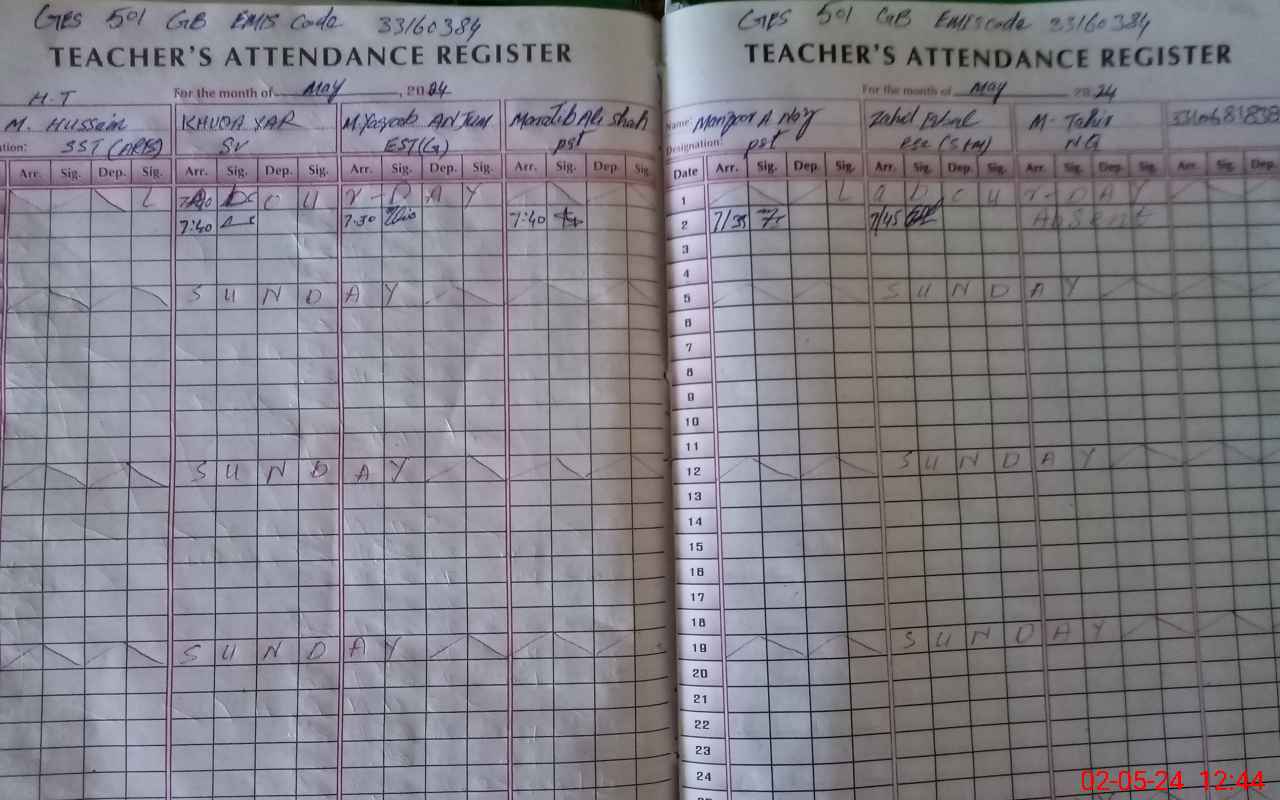 GES 501 GB EMIS Code 33160384
TEACHER'S ATTENDANCE REGISTER
For the month of May, 2024
H.T
M. Hussain KHUDA YAR M. Yaqoob Anjum Maratib Ali Shah
ation: SST (ARB) SV EST(G) PST
Arr. Sig. Dep. Sig. Arr. Sig. Dep. Sig. Arr. Sig. Dep. Sig. Arr. Sig. Dep. Sig.
L A B O U R - D A Y
7:40 7:30 7:40
S U N D A Y
S U N D A Y
S U N D A Y
GES 501 GB EMIS code 33160384
TEACHER'S ATTENDANCE REGISTER
For the month of May 2024
Name: Manzoor A M. Tahir
Designation: PST NQ
Date Arr. Sig. Dep. Sig. Arr. Sig. Dep. Sig. Arr. Sig. Dep. Sig. Arr. Sig. Dep.
1 L a b o u r - D A Y
2 7/35 7/45 Absent
3
4
5 S U N D A Y
6
7
8
9
10
11
12 S U N D A Y
13
14
15
16
17
18
19 S U N D A Y
20
21
22
23
24
02-05-24 12:44